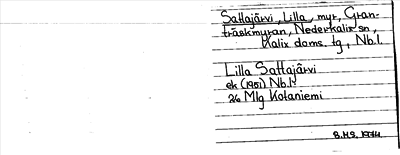 Sattajärvi, Lilla, myr, Gran-
träskmyran, Nederkalix sn,
Kalix doms. tg, Nb.l.
Lilla Sattajärvi
ek (1951) Nb.l.
26 Mlg Kotaniemi
B.H.S. 1974